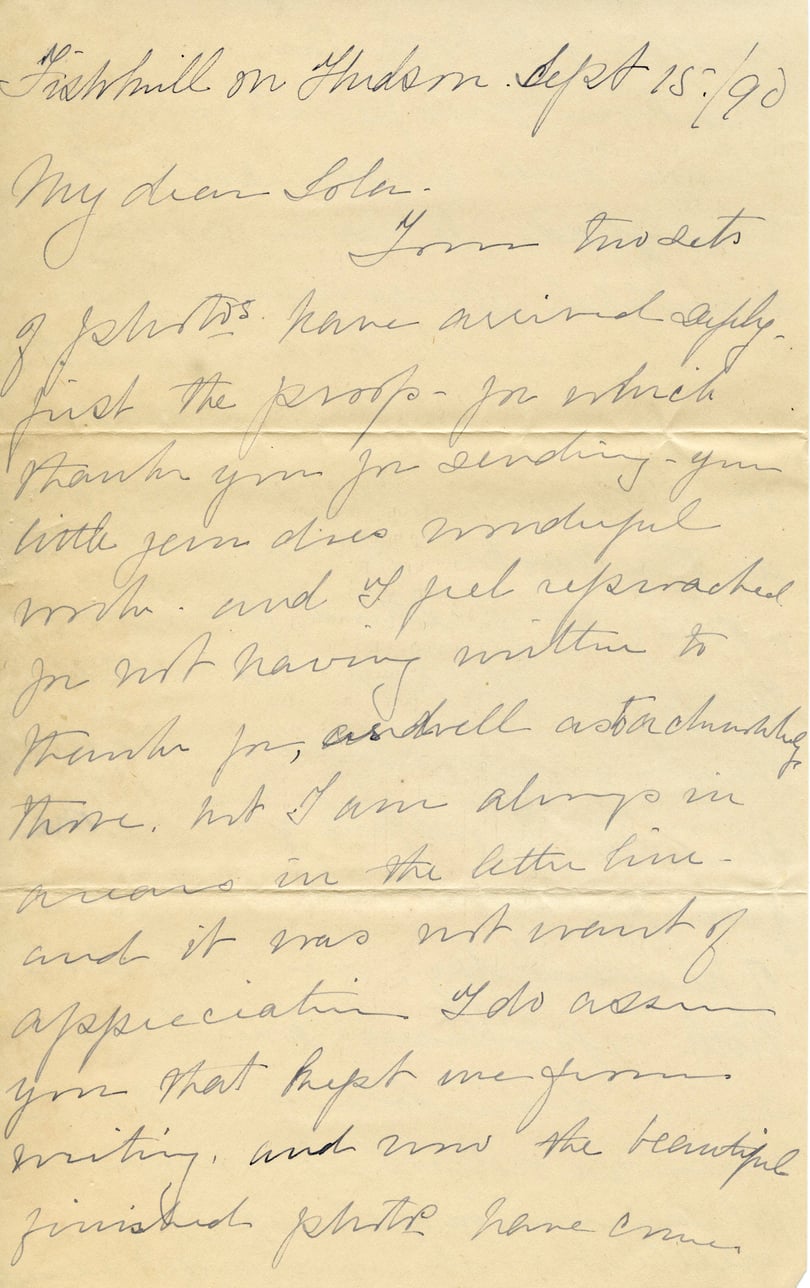 Fishkill on Hudson. Sept 15./90
My dear Lola.
Your two sets
of photos. have arrived safely-
first the proofs- for which
thank you for sending- your
little gem does wonderful
work. and I feel reproached
for not having written to
thank for, as well as to acknowledge
those. but I am always in
arears in the letter line-
and it was not want of
appreciation I do assure
you that kept me from
writing. and now the beautiful
finished photos have come.